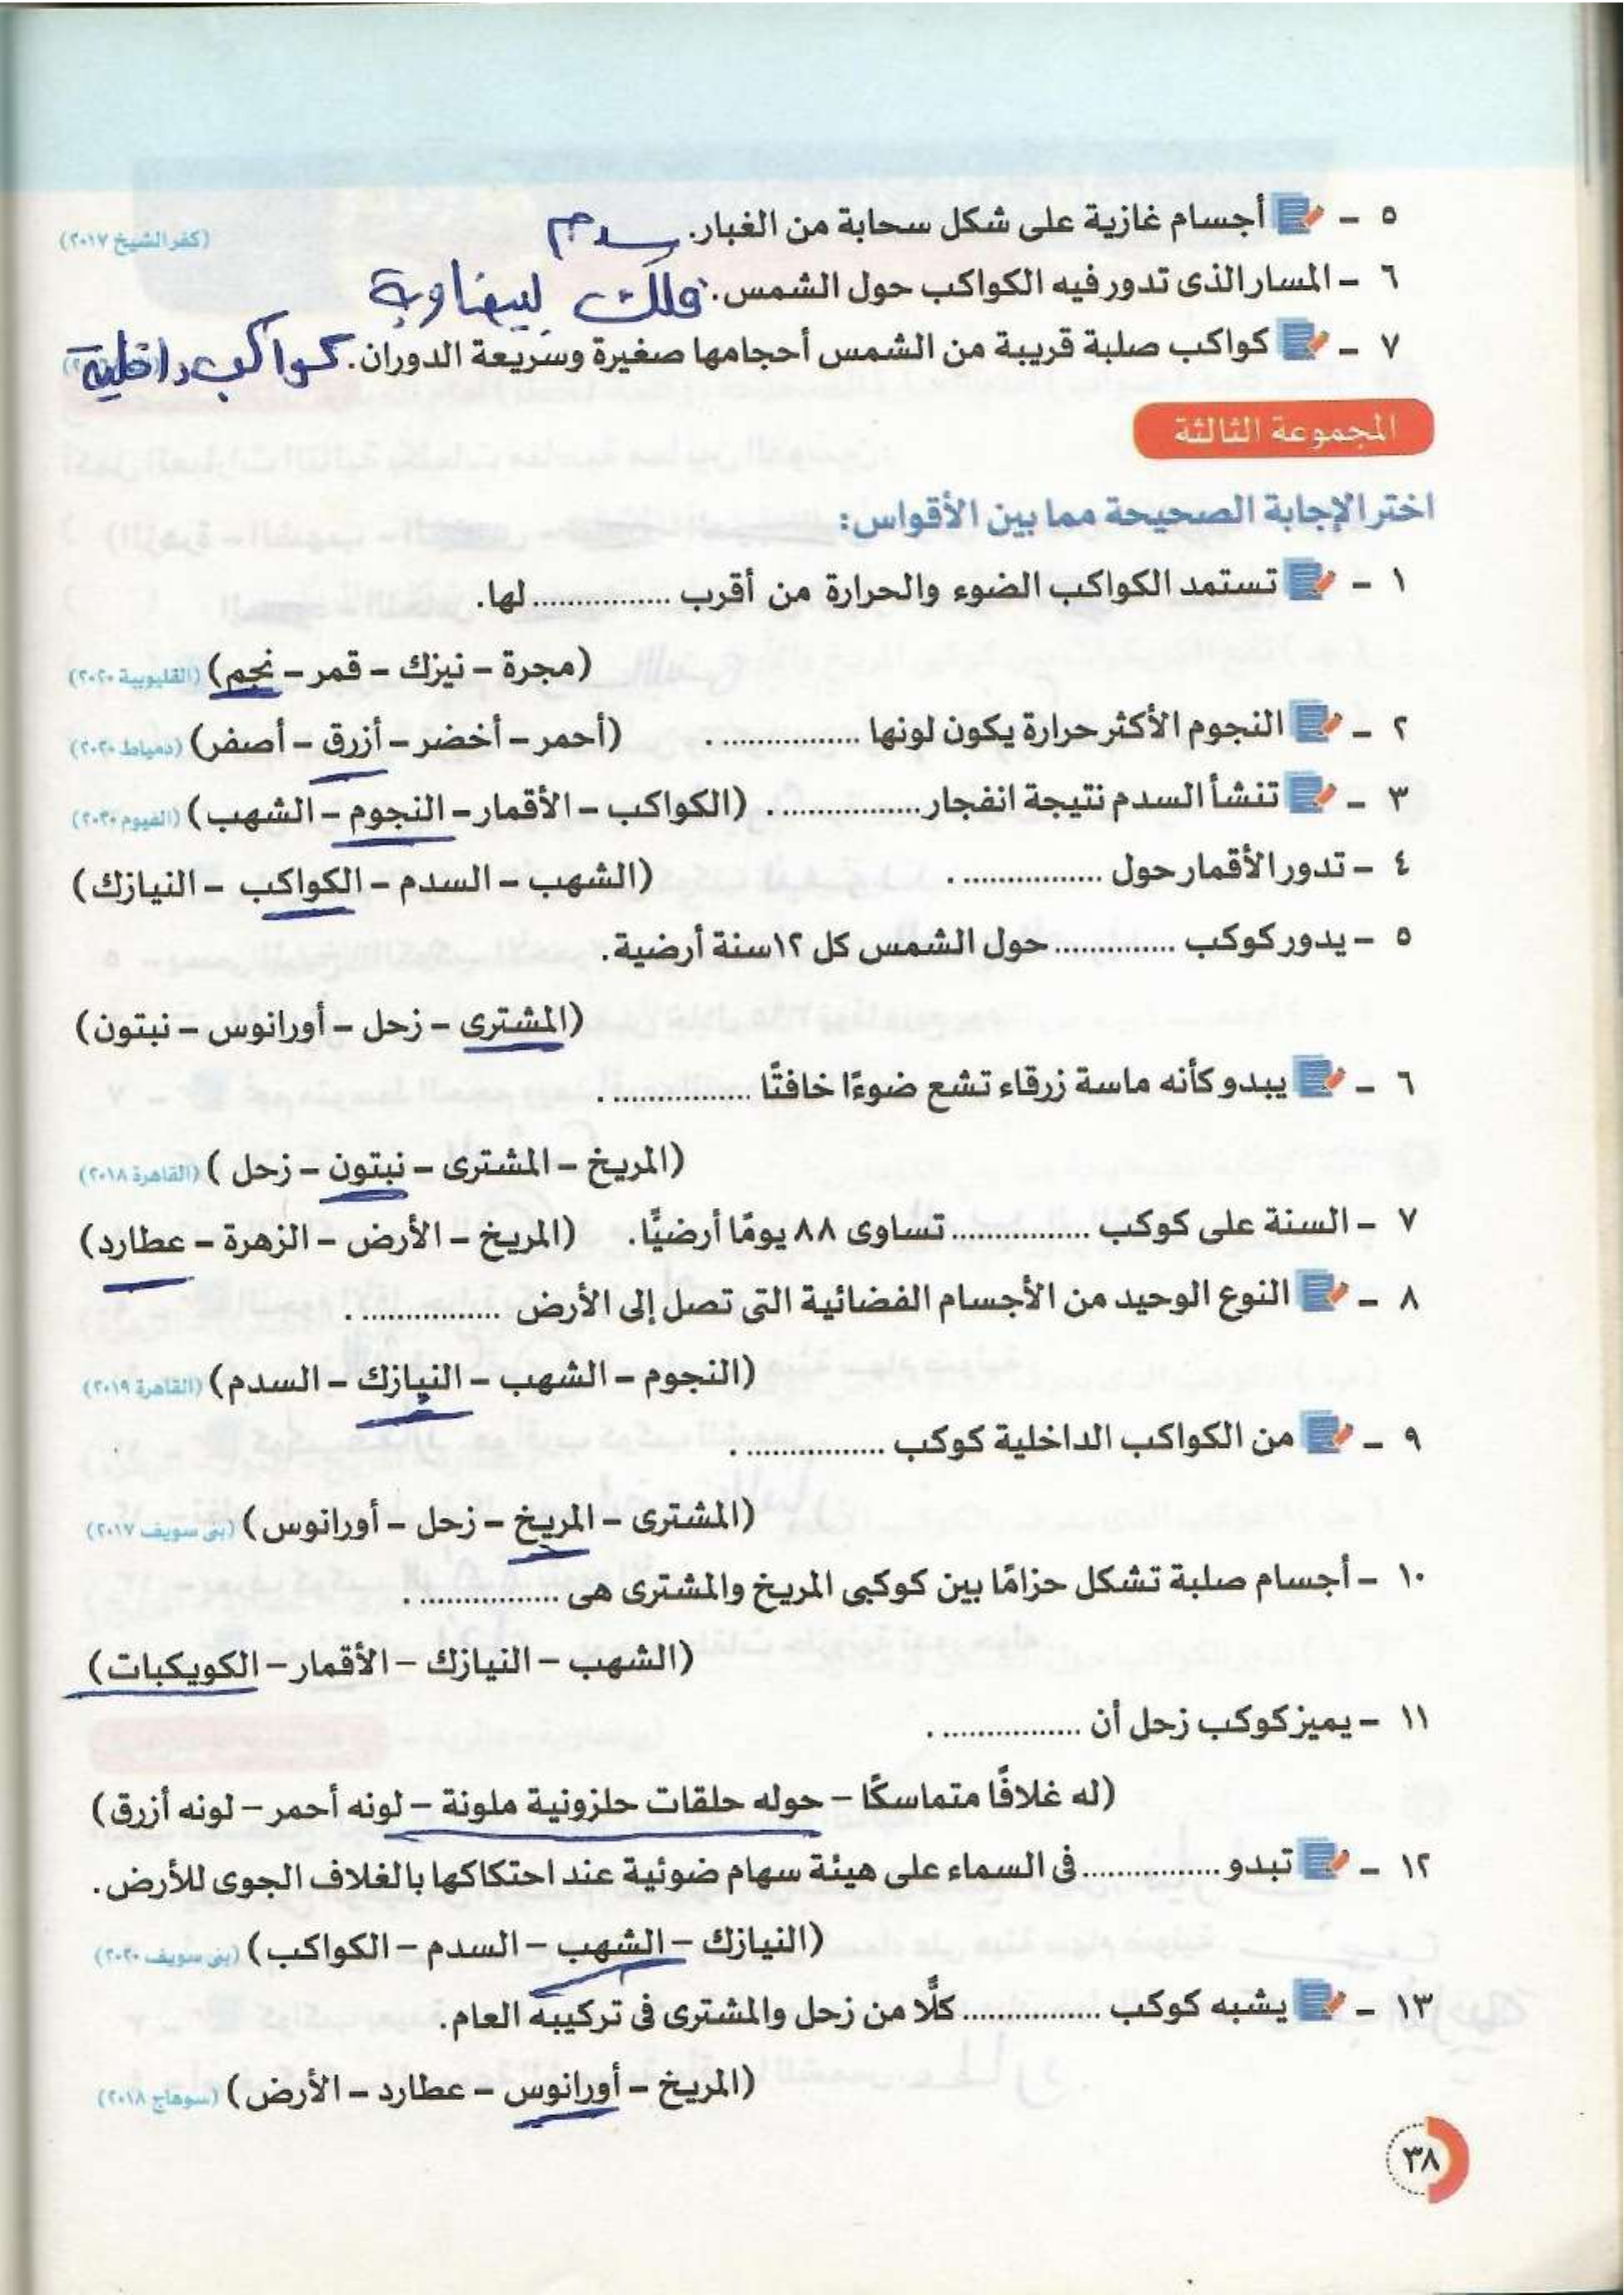 ٥ - أجسام غازية على شكل سحابة من الغبار. سدم (كفر الشيخ ٢٠١٧)
٦ - المسار الذى تدور فيه الكواكب حول الشمس. فلك بيضاوية
٧ - كواكب صلبة قريبة من الشمس أحجامها صغيرة وسريعة الدوران. كواكب داخلية
المجموعة الثالثة
اختر الإجابة الصحيحة مما بين الأقواس:
١ - تستمد الكواكب الضوء والحرارة من أقرب ................ لها.
(مجرة - نيزك - قمر - نجم) (القليوبية ٢٠٢٠)
٢ - النجوم الأكثر حرارة يكون لونها ................ . (أحمر - أخضر - أزرق - أصفر) (دمياط ٢٠٢٠)
٣ - تنشأ السدم نتيجة انفجار ................ . (الكواكب - الأقمار - النجوم - الشهب) (الفيوم ٢٠٢٠)
٤ - تدور الأقمار حول ................ . (الشهب - السدم - الكواكب - النيازك)
٥ - يدور كوكب .............. حول الشمس كل ١٢ سنة أرضية.
(المشترى - زحل - أورانوس - نبتون)
٦ - يبدو كأنه ماسة زرقاء تشع ضوءًا خافتًا ................ .
(المريخ - المشترى - نبتون - زحل ) (القاهرة ٢٠١٨)
٧ - السنة على كوكب ................ تساوى ٨٨ يومًا أرضيًّا. (المريخ - الأرض - الزهرة - عطارد)
٨ - النوع الوحيد من الأجسام الفضائية التى تصل إلى الأرض ................ .
(النجوم - الشهب - النيازك - السدم) (القاهرة ٢٠١٩)
٩ - من الكواكب الداخلية كوكب ................ .
(المشترى - المريخ - زحل - أورانوس) (بنى سويف ٢٠١٧)
١٠ - أجسام صلبة تشكل حزامًا بين كوكبى المريخ والمشترى هى ................ .
(الشهب - النيازك - الأقمار - الكويكبات)
١١ - يميز كوكب زحل أن ................ .
(له غلافًا متماسكًا - حوله حلقات حلزونية ملونة - لونه أحمر - لونه أزرق)
١٢ - تبدو ................ فى السماء على هيئة سهام ضوئية عند احتكاكها بالغلاف الجوى للأرض.
(النيازك - الشهب - السدم - الكواكب) (بنى سويف ٢٠٢٠)
١٣ - يشبه كوكب ................ كلًّا من زحل والمشترى فى تركيبه العام.
(المريخ - أورانوس - عطارد - الأرض) (سوهاج ٢٠١٨)
٣٨